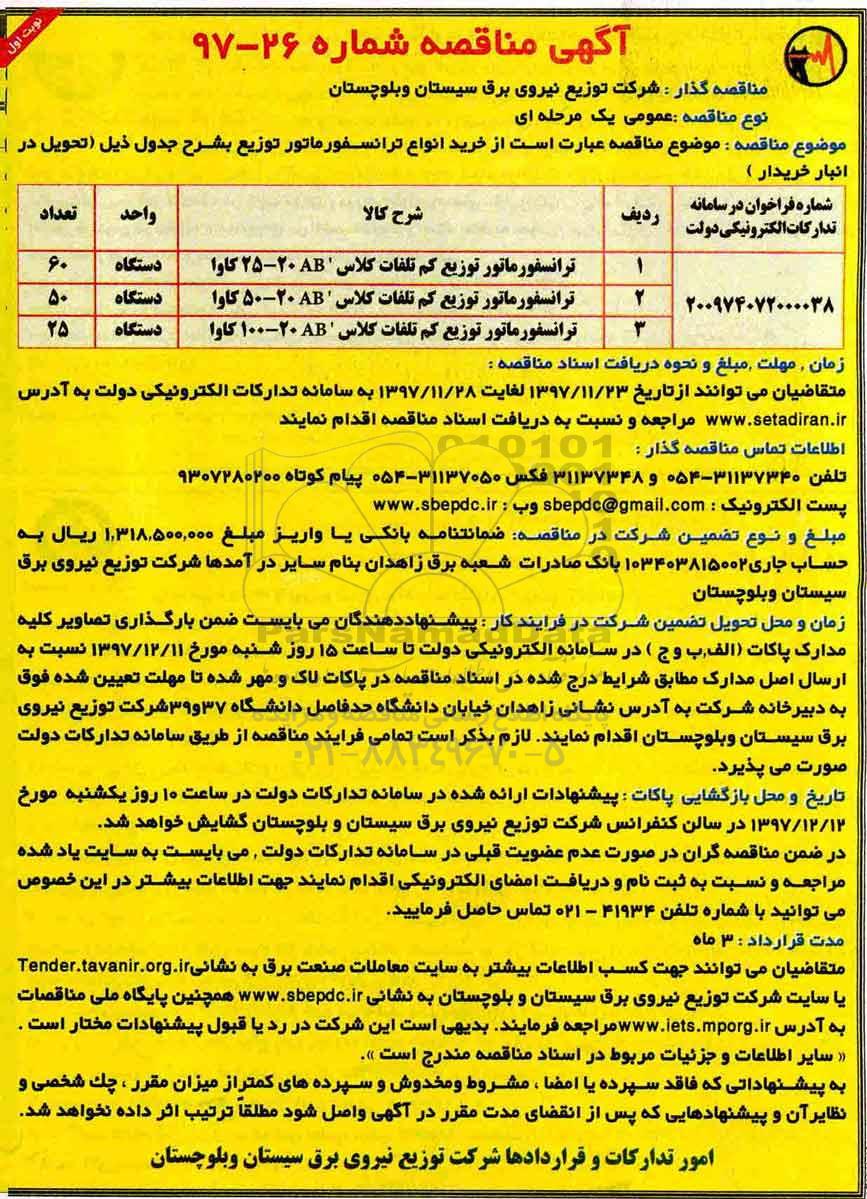 نوبت اول
آگهی مناقصه شماره ۲۶-۹۷
مناقصه گذار : شرکت توزیع نیروی برق سیستان وبلوچستان
نوع مناقصه :عمومی یک مرحله ای
موضوع مناقصه : موضوع مناقصه عبارت است از خرید انواع ترانسفورماتور توزیع بشرح جدول ذیل (تحویل در
انبار خریدار )
شماره فراخوان در سامانه تدارکات الکترونیکی دولت ردیف شرح کالا واحد تعداد
۲۰۰۹۷۴۰۷۲۰۰۰۰۳۸
۱ ترانسفورماتور توزیع کم تلفات کلاس ' AB ۲۰-۲۵ کاوا دستگاه ۶۰
۲ ترانسفورماتور توزیع کم تلفات کلاس ' AB ۲۰-۵۰ کاوا دستگاه ۵۰
۳ ترانسفورماتور توزیع کم تلفات کلاس ' AB ۲۰-۱۰۰ کاوا دستگاه ۲۵
زمان , مهلت ,مبلغ و نحوه دریافت اسناد مناقصه :
متقاضیان می توانند ازتاریخ ۱۳۹۷/۱۱/۲۳ لغایت ۱۳۹۷/۱۱/۲۸ به سامانه تدارکات الکترونیکی دولت به آدرس
www.setadiran.ir مراجعه و نسبت به دریافت اسناد مناقصه اقدام نمایند
اطلاعات تماس مناقصه گذار :
تلفن ۳۱۱۳۷۳۴۰-۰۵۴ و ۳۱۱۳۷۳۴۸ فکس ۳۱۱۳۷۰۵۰-۰۵۴ پیام کوتاه ۹۳۰۷۲۸۰۲۰۰
پست الکترونیک : sbepdc@gmail.com وب : www.sbepdc.ir
مبلغ و نوع تضمین شرکت در مناقصه: ضمانتنامه بانکی یا واریز مبلغ ۱,۳۱۸,۵۰۰,۰۰۰ ریال به
حساب جاری۱۰۳۴۰۳۸۱۵۰۰۲ بانک صادرات شعبه برق زاهدان بنام سایر در آمدها شرکت توزیع نیروی برق
سیستان وبلوچستان
زمان و محل تحویل تضمین شرکت در فرایند کار : پیشنهاددهندگان می بایست ضمن بارگذاری تصاویر کلیه
مدارک پاکات (الف,ب و ج ) در سامانه الکترونیکی دولت تا ساعت ۱۵ روز شنبه مورخ ۱۳۹۷/۱۲/۱۱ نسبت به
ارسال اصل مدارک مطابق شرایط درج شده در اسناد مناقصه در پاکات لاک و مهر شده تا مهلت تعیین شده فوق
به دبیرخانه شرکت به آدرس نشانی زاهدان خیابان دانشگاه حدفاصل دانشگاه ۳۷و۳۹شرکت توزیع نیروی
برق سیستان وبلوچستان اقدام نمایند. لازم بذکر است تمامی فرایند مناقصه از طریق سامانه تدارکات دولت
صورت می پذیرد.
تاریخ و محل بازگشایی پاکات : پیشنهادات ارائه شده در سامانه تدارکات دولت در ساعت ۱۰ روز یکشنبه مورخ
۱۳۹۷/۱۲/۱۲ در سالن کنفرانس شرکت توزیع نیروی برق سیستان و بلوچستان گشایش خواهد شد.
در ضمن مناقصه گران در صورت عدم عضویت قبلی در سامانه تدارکات دولت , می بایست به سایت یاد شده
مراجعه و نسبت به ثبت نام و دریافت امضای الکترونیکی اقدام نمایند جهت اطلاعات بیشتر در این خصوص
می توانید با شماره تلفن ۴۱۹۳۴ - ۰۲۱ تماس حاصل فرمایید.
مدت قرارداد : ۳ ماه
متقاضیان می توانند جهت کسب اطلاعات بیشتر به سایت معاملات صنعت برق به نشانیTender.tavanir.org.ir
یا سایت شرکت توزیع نیروی برق سیستان و بلوچستان به نشانی www.sbepdc.ir همچنین پایگاه ملی مناقصات
به آدرس www.iets.mporg.irمراجعه فرمایند. بدیهی است این شرکت در رد یا قبول پیشنهادات مختار است .
« سایر اطلاعات و جزئیات مربوط در اسناد مناقصه مندرج است ».
به پیشنهاداتی که فاقد سپرده یا امضا ، مشروط ومخدوش و سپرده های کمتراز میزان مقرر ، چک شخصی و
نظایرآن و پیشنهادهایی که پس از انقضای مدت مقرر در آگهی واصل شود مطلقاً ترتیب اثر داده نخواهد شد.
امور تدارکات و قراردادها شرکت توزیع نیروی برق سیستان وبلوچستان
ParsNamadData
۰۲۱-۸۸۳۴۹۶۷۰-۵